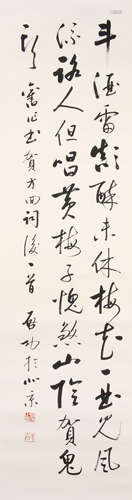 斗酒雷颠醉未休梅花一曲见风
流路人但唱黄梅子愧煞山阴贺鬼
头
旧作书贺方回词后一首 启功于北京